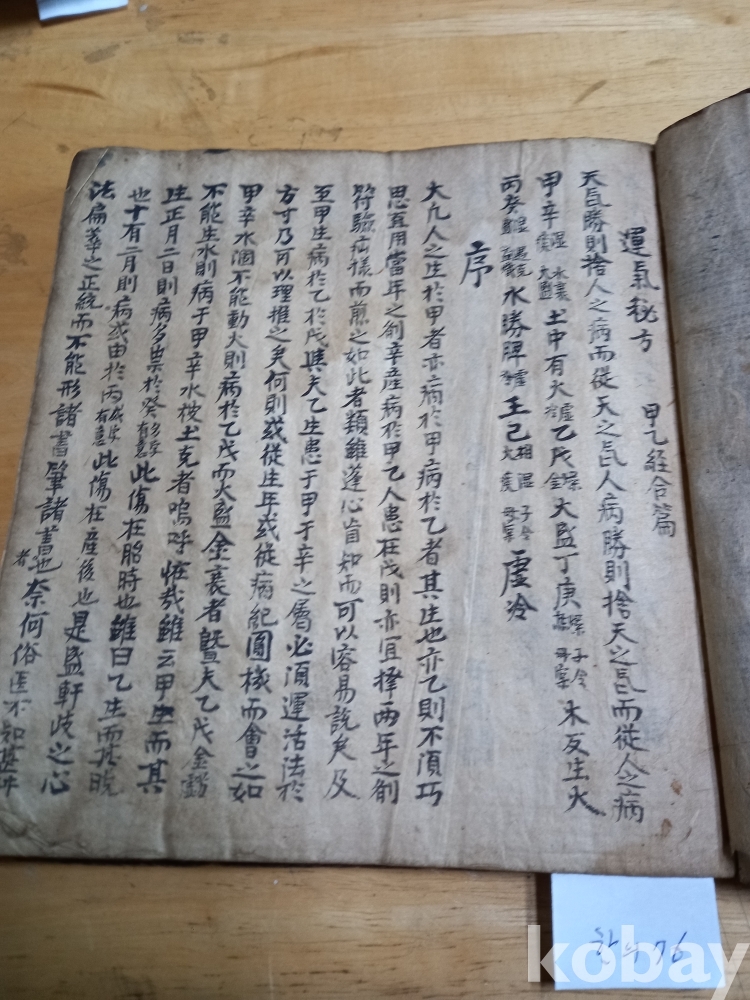 運氣秘方 甲乙經合篇
天氣勝則捨人之病而從天之氣人病勝則捨天之氣而從人之病
甲辛 土中有火 乙戊 火盛丁庚 木反生火
丙癸 水勝脾 壬己 虛冷
序
大凡人之生於甲者亦病於甲病於乙者其生也亦乙則不須巧
思直用當年之劑辛産病於甲乙人患在戊則亦宜擇兩年之劑
符驗病樣而煎之如此者類雖蓬心皆知而可以容易說矣及
至甲生病於乙於戊與夫乙生患于甲于辛之屬必須運活法於
方寸乃可以理推之矣何則或從生年或從病紀圓機而會之如
甲辛水涸不能動火則病於乙戊而火盛金衰者曁夫乙戊金
不能生水則病于甲辛水 土克者嗚呼怪哉雖云甲生而其
生正月二日則病多稟於癸 此傷在胎時也雖曰乙生而其晩
也十有二月則病或由於丙 此傷在産後也是盖軒歧之心
法扁華之正統而不能形諸書肇諸書也者奈何俗医不知
한의76
kobay